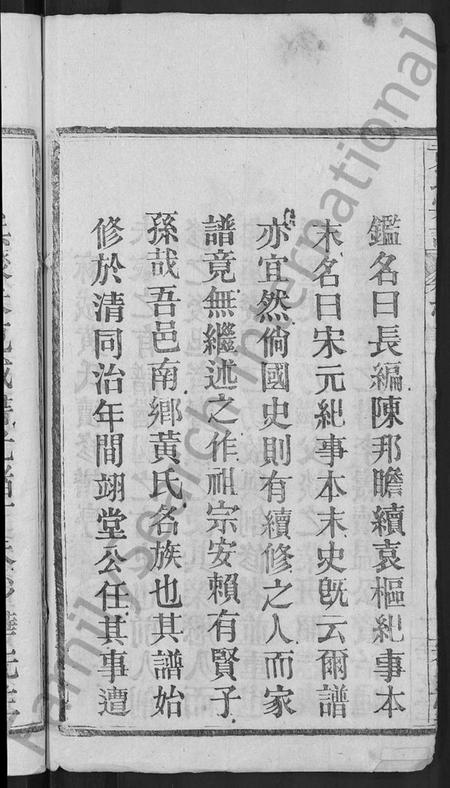 鑑名曰長編陳邦瞻續袁樞紀事本
末名曰宋元紀事本末史旣云爾譜
亦宜然倘國史則有續修之人而家
譜竟無繼述之作祖宗安賴有賢子
孫哉吾邑南鄉黃氏名族也其譜始
修於清同治年間翊堂公任其事遭
FamilySearch International